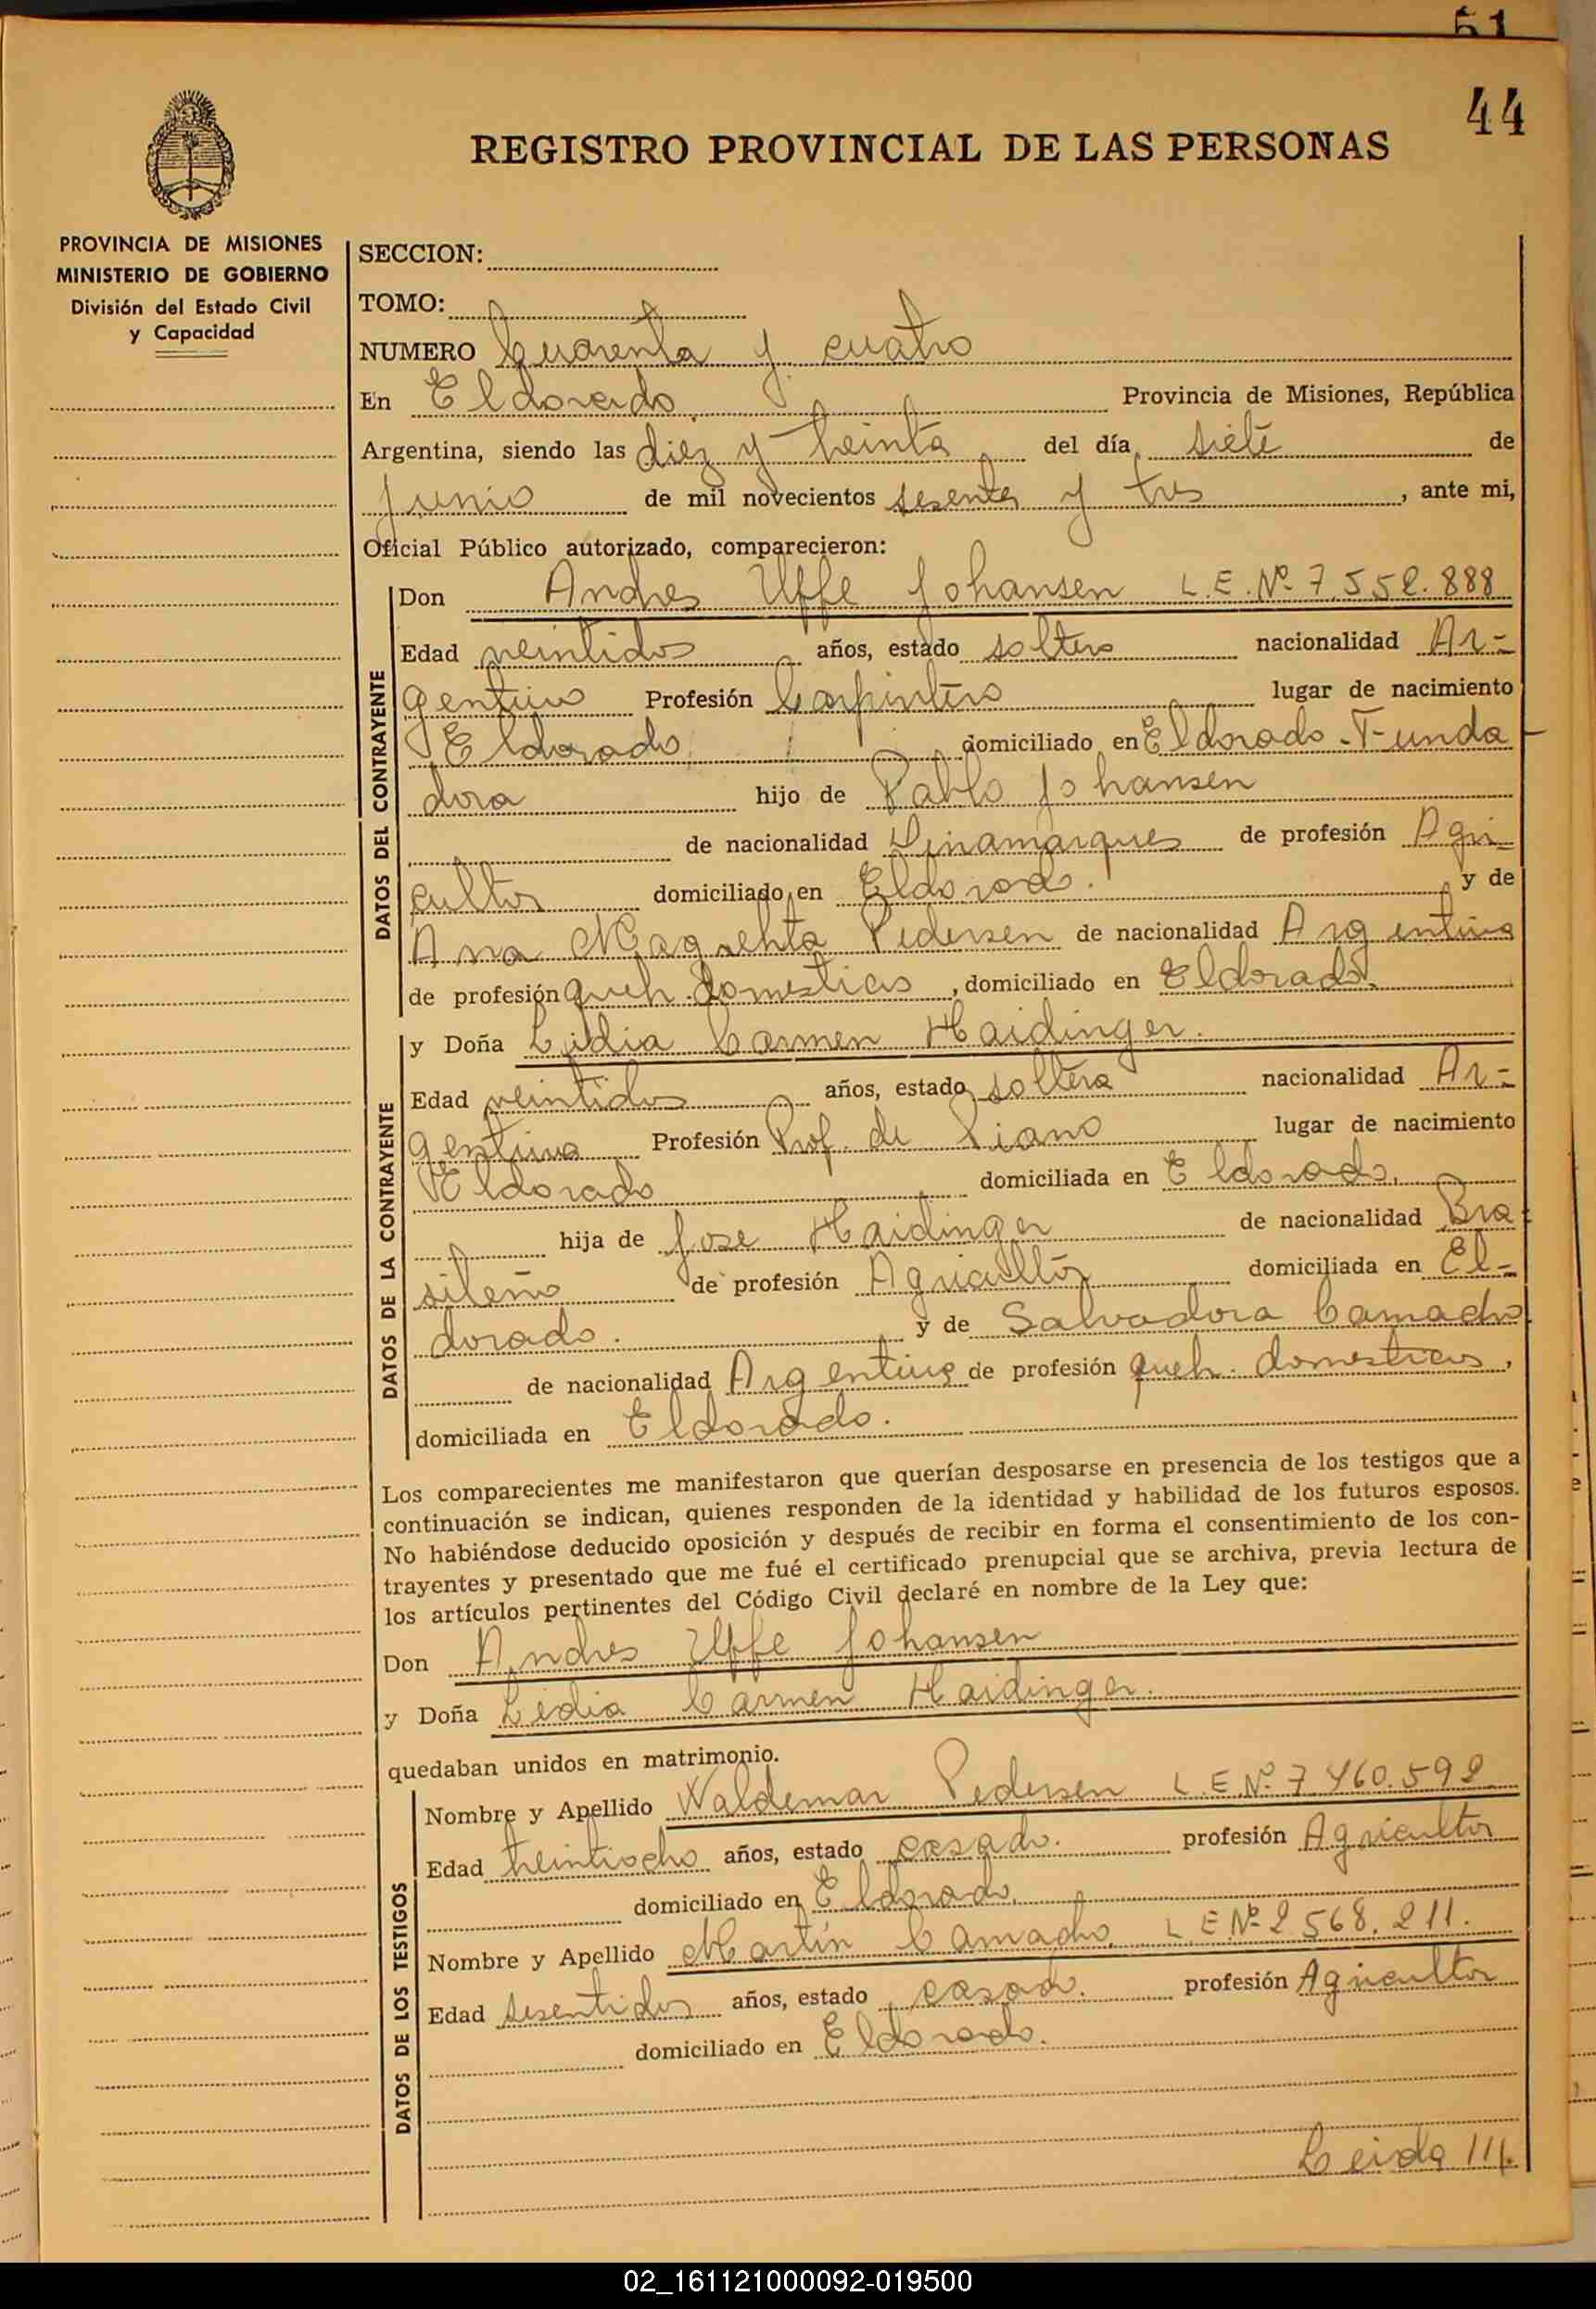 51
44
REGISTRO PROVINCIAL DE LAS PERSONAS
PROVINCIA DE MISIONES
MINISTERIO DE GOBIERNO
División del Estado Civil
y Capacidad
SECCION:
TOMO:
NUMERO Cuarenta y cuatro
En Eldorado Provincia de Misiones, República
Argentina, siendo las diez y treinta del día siete de
junio de mil novecientos sesenta y tres, ante mi,
Oficial Público autorizado, comparecieron:
DATOS DEL CONTRAYENTE
Don Andres Uffe Johansen L.E. Nº 7.552.888
Edad veintidos años, estado soltero nacionalidad Ar-
gentino Profesión Carpintero lugar de nacimiento
Eldorado domiciliado en Eldorado-Funda-
dora hijo de Pablo Johansen
de nacionalidad Dinamarques de profesión Agri-
cultor domiciliado en Eldorado. y de
Ana Magrehta Pedersen de nacionalidad Argentina
de profesión queh. domesticos, domiciliado en Eldorado.
DATOS DE LA CONTRAYENTE
y Doña Lidia Carmen Haidinger.
Edad veintidos años, estado soltera nacionalidad Ar-
gentina Profesión Prof. de Piano lugar de nacimiento
Eldorado domiciliada en Eldorado.
hija de Jose Haidinger de nacionalidad Bra-
sileño de profesión Agricultor domiciliada en El-
dorado. y de Salvadora Camacho
de nacionalidad Argentina de profesión queh. domesticos,
domiciliada en Eldorado.
Los comparecientes me manifestaron que querían desposarse en presencia de los testigos que a
continuación se indican, quienes responden de la identidad y habilidad de los futuros esposos.
No habiéndose deducido oposición y después de recibir en forma el consentimiento de los con-
trayentes y presentado que me fué el certificado prenupcial que se archiva, previa lectura de
los artículos pertinentes del Código Civil declaré en nombre de la Ley que:
Don Andres Uffe Johansen
y Doña Lidia Carmen Haidinger.
quedaban unidos en matrimonio.
DATOS DE LOS TESTIGOS
Nombre y Apellido Waldemar Pedersen L.E.Nº 7.460.592
Edad treintiocho años, estado casado. profesión Agricultor
domiciliado en Eldorado.
Nombre y Apellido Martín Camacho. L E Nº 2.568.211.
Edad sesentidos años, estado casado. profesión Agricultor
domiciliado en Eldorado.
Leida ///.
02_161121000092-019500